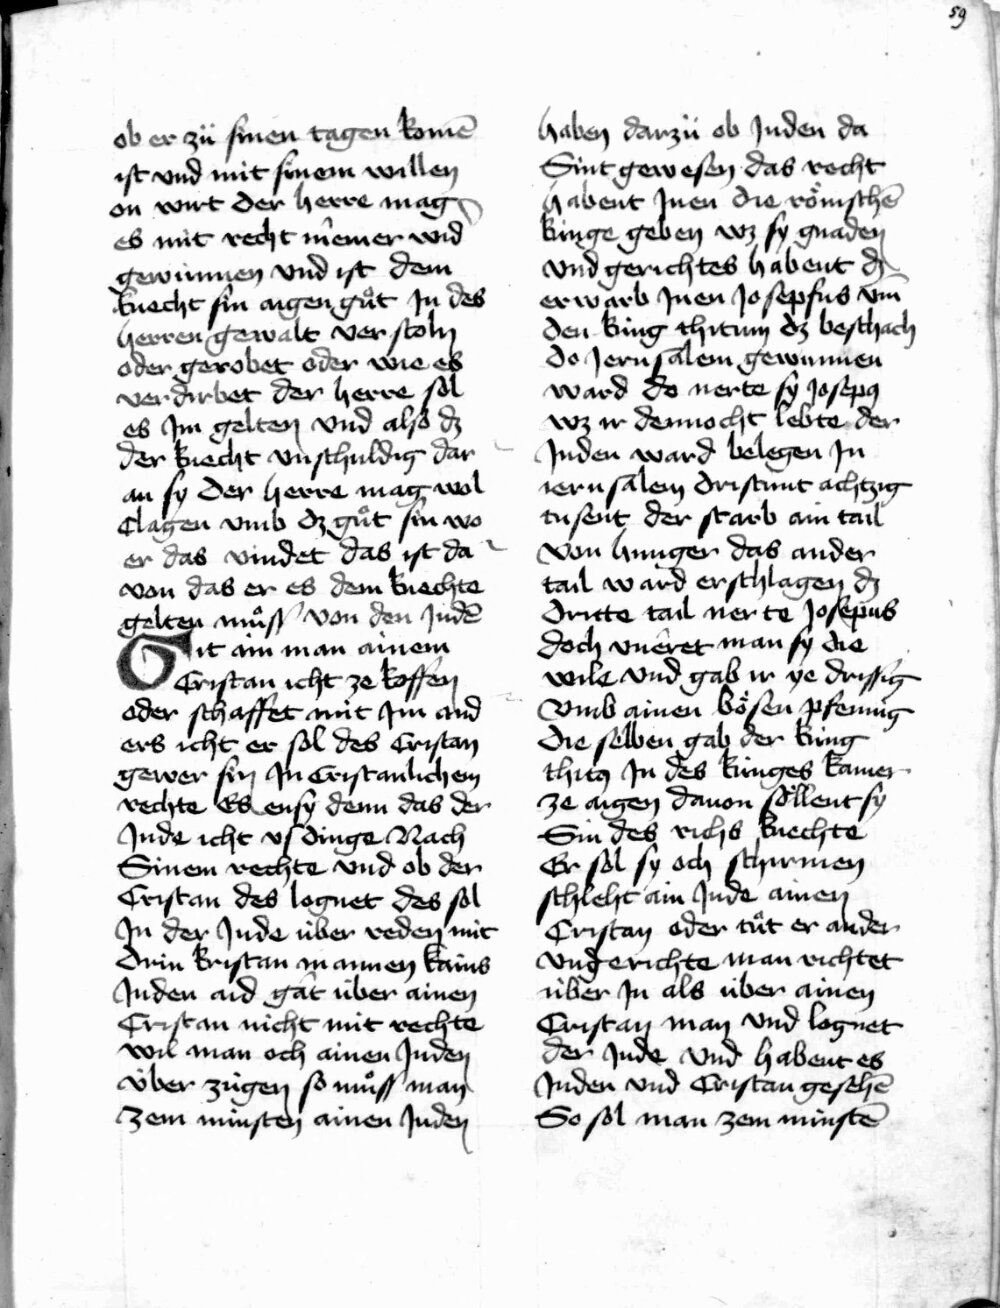 59
ob er zü sinen tagen komē
ist vnd mit sinem willen
on wirt der herre mag
es mit recht niemer wid
gewinnen vnd ist dem
knecht sin aigen gůt In des
herren gewalt verstoln
oder gerobet oder wie es
verdirbet der herre sol
es Im gelten vnd also dz
der knecht vnschuldig dar
an sy der herre mag wol
Clagen vmb dz gůt sin wo
er das vindet das ist da
von das er es dem knechte
gelten můss von den Judē
Git ain man ainem
Cristan icht ze koffen
oder schaffet mit Im and
ers icht er sol des Cristan
gewer sin In Cristanlichem
rechte Es ensy denn das der
Jude icht vsdinge Nach
Sinem rechte vnd ob der
Cristan des lognet des sol
In der Jude über reden mit
drin kristan mannen kains
Juden aid gat über ainen
Cristan nicht mit rechte
wil man och ainen Juden
über zügen so můss man
zem minsten ainen Juden
haben darzü ob Juden da
Sint gewesen das recht
habent Inen die römschē
künge geben wz sy gnaden
vnd gerichtes habent dz
erwarb Inen Josepfus vm̄
den küng thitum dz beschach
do Jerusalem gewunnen
ward do nerte sy Josepꝰ
wz ir dennocht lebte der
Juden ward belegen In
ierusalem dristunt achtzig
tusent der starb ain tail
von hunger das ander
tail ward erschlagen dz
dritte tail nerte Josepus
doch vneret man sy die
wile vnd gab ir ye drissig
vmb ainen bösen pfennig
die selben gab der küng
thitꝰ In des künges kamer
ze aigen davon söllent sy
Sin des richs knechte
Er sol sy och schirmen
schleht ain Jude ainen
Cristan oder tůt er ander
vngerichte man richtet
über In als über ainen
Cristan man vnd lognet
der Jude vnd habent es
Juden vnd Cristan gesehē
So sol man zem minstē